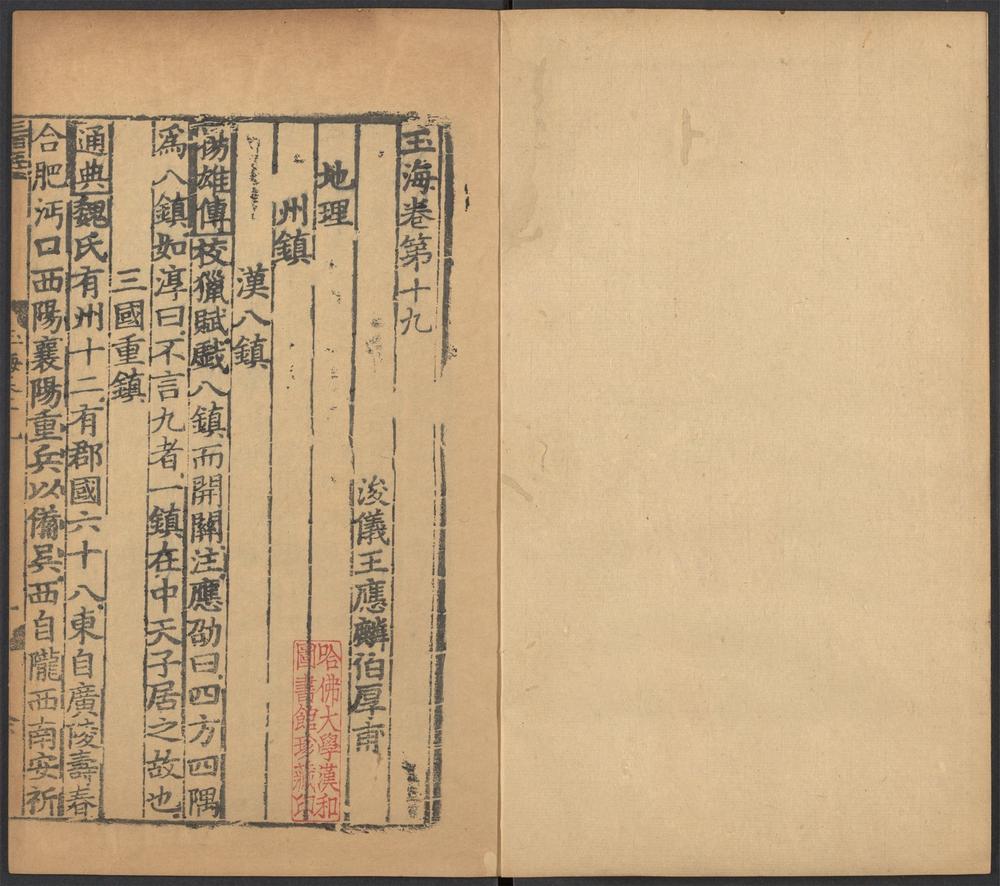 玉海卷第十九
浚儀王應麟伯厚甫
地理
州鎮
漢八鎮
楊雄傳校獵賦戲八鎮而開關注應劭曰四方四隅
爲八鎮如淳曰不言九者一鎮在中天子居之故也
三國重鎮
通典魏氏有州十二有郡國六十八東自廣陵壽春
合肥沔口西陽襄陽重兵以備吳西自隴西南安祈
哈佛大學漢和
圖書館珍藏印